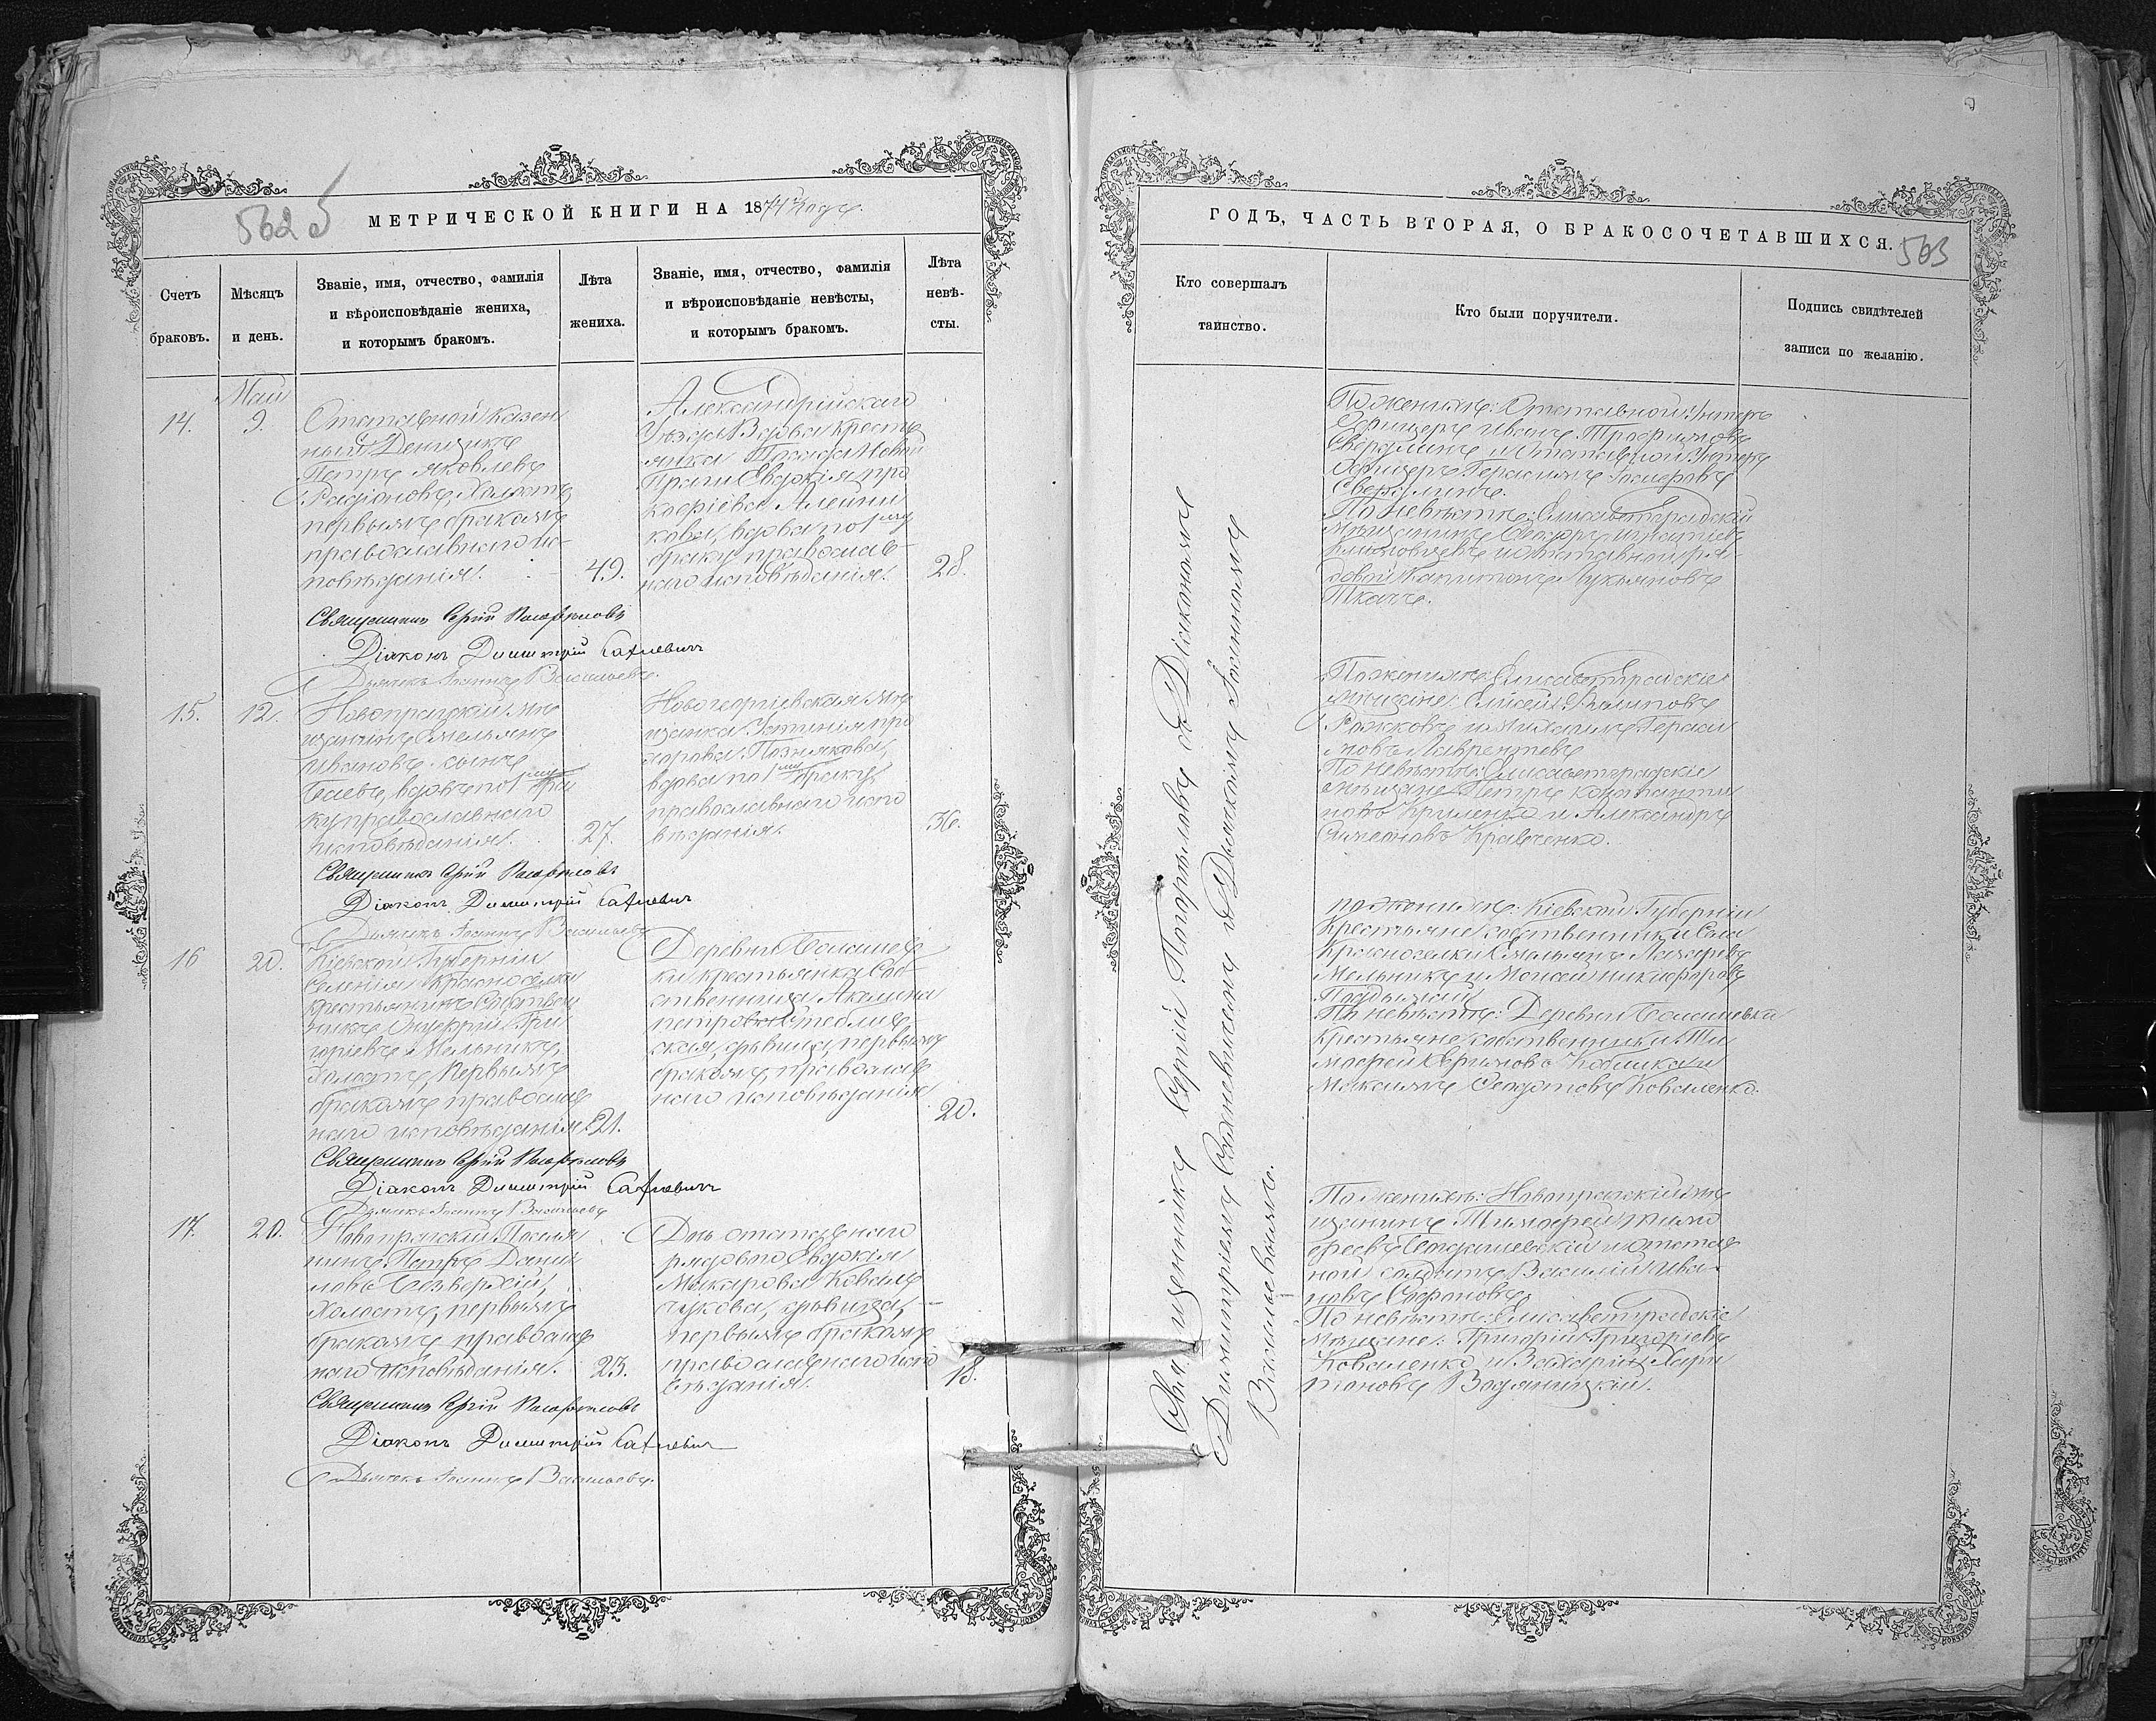 562 об
МЕТРИЧЕСКОЙ КНИГИ НА 1874 годъ.
Счетъ браковъ.
Мѣсяцъ и день.
Званіе, имя, отчество, фамилія
и вѣроисповѣданіе жениха,
и которымъ бракомъ.
Лѣта
жениха.
Званіе, имя, отчество, фамилія
и вѣроисповѣданіе невѣсты,
и которымъ бракомъ.
Лѣта
невѣ-
сты.
Май
14.
9.
Отставной казен
ный Денщикъ
Петръ Яковлевъ
Радіоновъ, Холостъ,
первымъ бракомъ
православнаго ис-
повѣданія.
49.
Александрійскаго
Уѣзда Вдова кресть
янка Посада Новой
Праги Евдокія Про
кофіева Алейни
кова, вдова по 1му
браку православ-
наго исповѣданія.
28.
Священникъ Сергій Погорѣловъ
Діаконъ Димитрій
Дьячекъ Іоаннъ Васильевъ.
15.
12.
Новопражскій мѣ
щанинъ Емельянъ
Ивановъ сынъ
вдовъ по 1му бра
ку православнаго
исповѣданія.
27.
Новогеоргіевская мѣ
щанка Устинія Про
хорова Познякова,
вдова по 1му браку,
православнаго испо
вѣданія.
36.
Священникъ Сергій Погорѣловъ
Діаконъ Димитрій
Дьячекъ Іоаннъ Васильевъ
16
20.
Кіевской Губерніи
Селенія Красноселки
крестьянинъ Собствен
никъ Онуфрій Гри
горіевъ Мельникъ,
Холостъ, Первымъ
бракомъ православ
наго исповѣданія.
21.
Деревни
ки крестьянка Соб-
ственница Акелина
Петрова Стеблев-
ская, дѣвица, первымъ
бракомъ, православ
наго исповѣданія
20.
Священникъ Сергій Погорѣловъ
Діаконъ Димитрій
Дьячекъ Іоаннъ Васильевъ
17.
20.
Новопражскій Поселя
нинъ Петръ Дани
ловъ Безверхій,
Холостъ, первымъ
бракомъ православ
наго исповѣданія.
23.
Дочь отставнаго
рядового Евдокія
Макарова Коваль
чукова, дѣвица,
первымъ бракомъ
православнаго испо
вѣданія.
18.
Священникъ Сергій Погорѣловъ
Діаконъ Димитрій
Дьячекъ Іоаннъ Васильевъ.
ГОДЪ, ЧАСТЬ ВТОРАЯ, О БРАКОСОЧЕТАВШИХСЯ.
563
Кто совершалъ
таинство.
Кто были поручители.
Подпись свидѣтелей
записи по желанію.
Священникъ Сергій Погорѣловъ съ Діакономъ
Димитріемъ и Дьячкомъ Іоанномъ
Васильевымъ.
По женихѣ: Отставной Унтеръ
Офицеръ Иванъ Трофимовъ
Свердлинъ и Отставной Унтеръ
Офицеръ Герасимъ
Свердлинъ.
По невѣстѣ: Елисаветградскій
мѣщанинъ Ѳеодоръ Игнатіевъ
и отставной ря-
довой Капитонъ Лукьяновъ
Ткачъ.
По женихѣ: Елисаветградскіе
мѣщане: Елисей Филиповъ
Рожковъ и Михаилъ Гераси
мовъ Лаврентьевъ
По невѣстѣ: Елисаветградскіе
мѣщане Петръ Константи
новъ Криленко и Александръ
Симеоновъ Кравченко.
По женихѣ: Кіевской Губерніи
Крестьяне собственники Села
Красноселки Емельянъ Лазаревъ
Мельникъ и Моисей Никифоровъ
По невѣстѣ: Деревни
Крестьяне собственники: Ти
мофей Ефимовъ и
Максимъ Ѳедотовъ Коваленко.
По женихѣ: Новопражскій мѣ
щанинъ Тимофей Тимо
феевъ и отстав
ной солдатъ Василій Ива-
новъ Сафоновъ,
По невѣстѣ: Елисаветградскіе
Мѣщане: Григорій Григоріевъ
Коваленко и Захарій Хари
тоновъ Водяницкій.